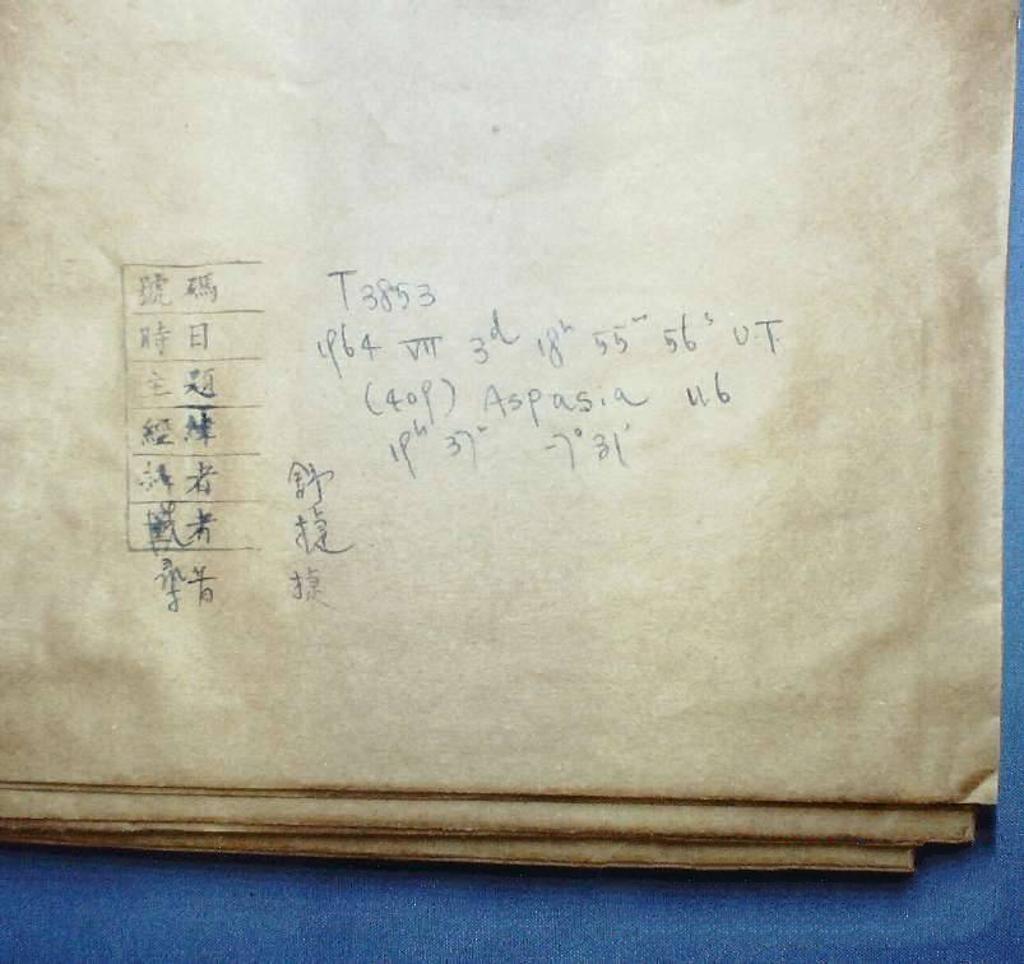 號碼 T3853
時日 1964 VII 3ᵈ 18ʰ 55ᵐ 56ˢ U.T.
主題 (409) Aspasia 11.6
經緯 19ʰ 37ᵐ -7°31′
者 舒
者 捷